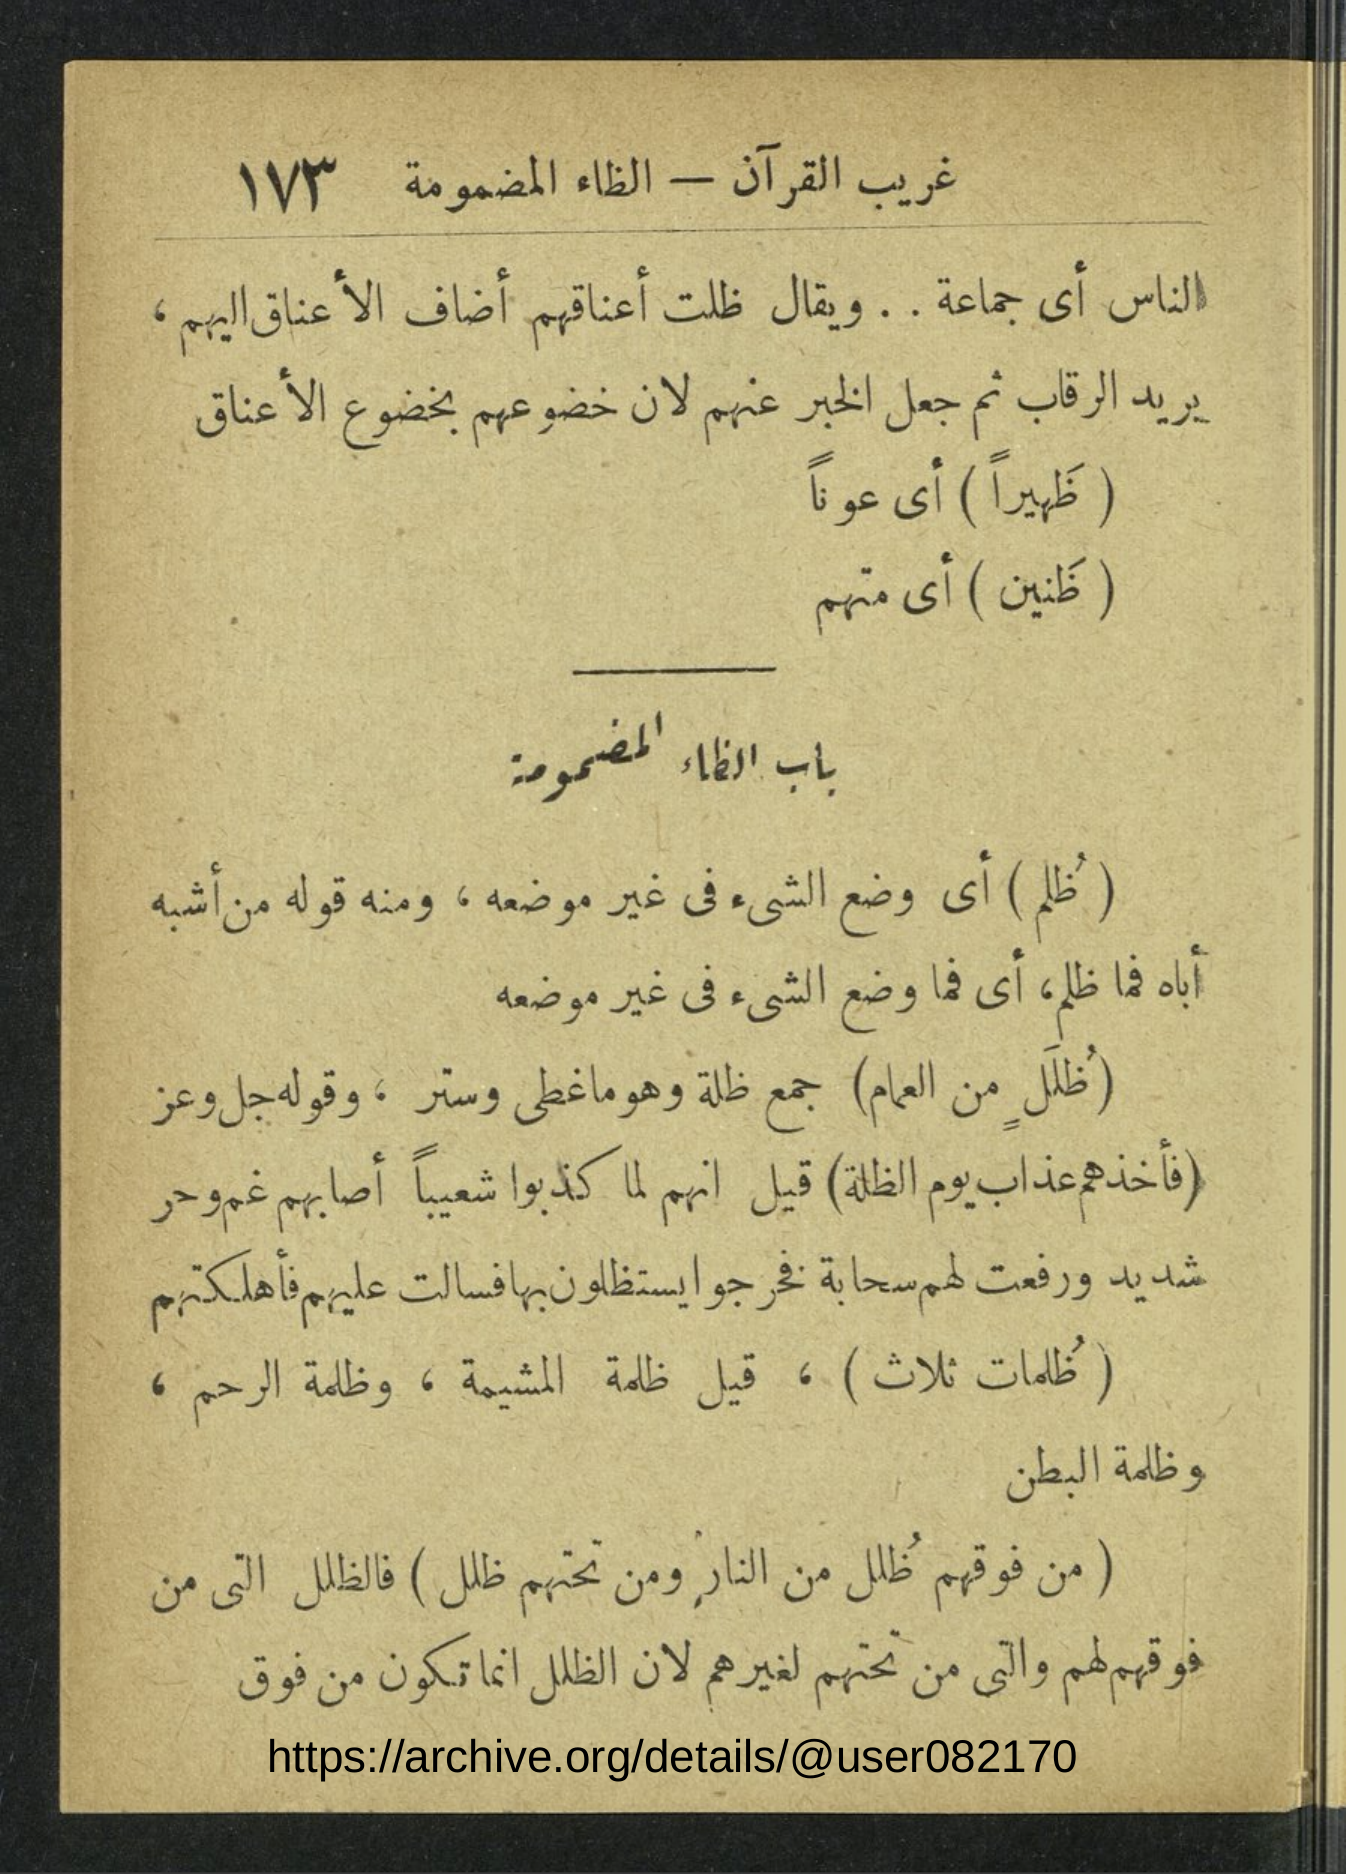 غريب القرآن — الظاء المضمومة ١٧٣
الناس أى جماعة . . ويقال ظلت أعناقهم أضاف الأعناق اليهم ،
يريد الرقاب ثم جعل الخبر عنهم لان خضوعهم بخضوع الأعناق
( ظَهيراً ) أى عوناً
( ظَنين ) أى متهم
باب الظاء المضمومة
( ظُلم ) أى وضع الشىء فى غير موضعه ، ومنه قوله من أشبه
أباه فما ظلم ، أى فما وضع الشىء فى غير موضعه
( ظُلَلٍ من الغمام ) جمع ظلة وهو ما غطى وستر ، وقوله جل وعز
( فأخذهم عذاب يوم الظلة ) قيل انهم لما كذبوا شعيباً أصابهم غم وحر
شديد ورفعت لهم سحابة فخرجوا يستظلون بها فسالت عليهم فأهلكتهم
( ظُلمات ثلاث ) ، قيل ظلمة المشيمة ، وظلمة الرحم ،
وظلمة البطن
( من فوقهم ظُلل من النار ومن تحتهم ظلل ) فالظلل التى من
فوقهم لهم والتى من تحتهم لغيرهم لان الظلل انما تكون من فوق
https://archive.org/details/@user082170